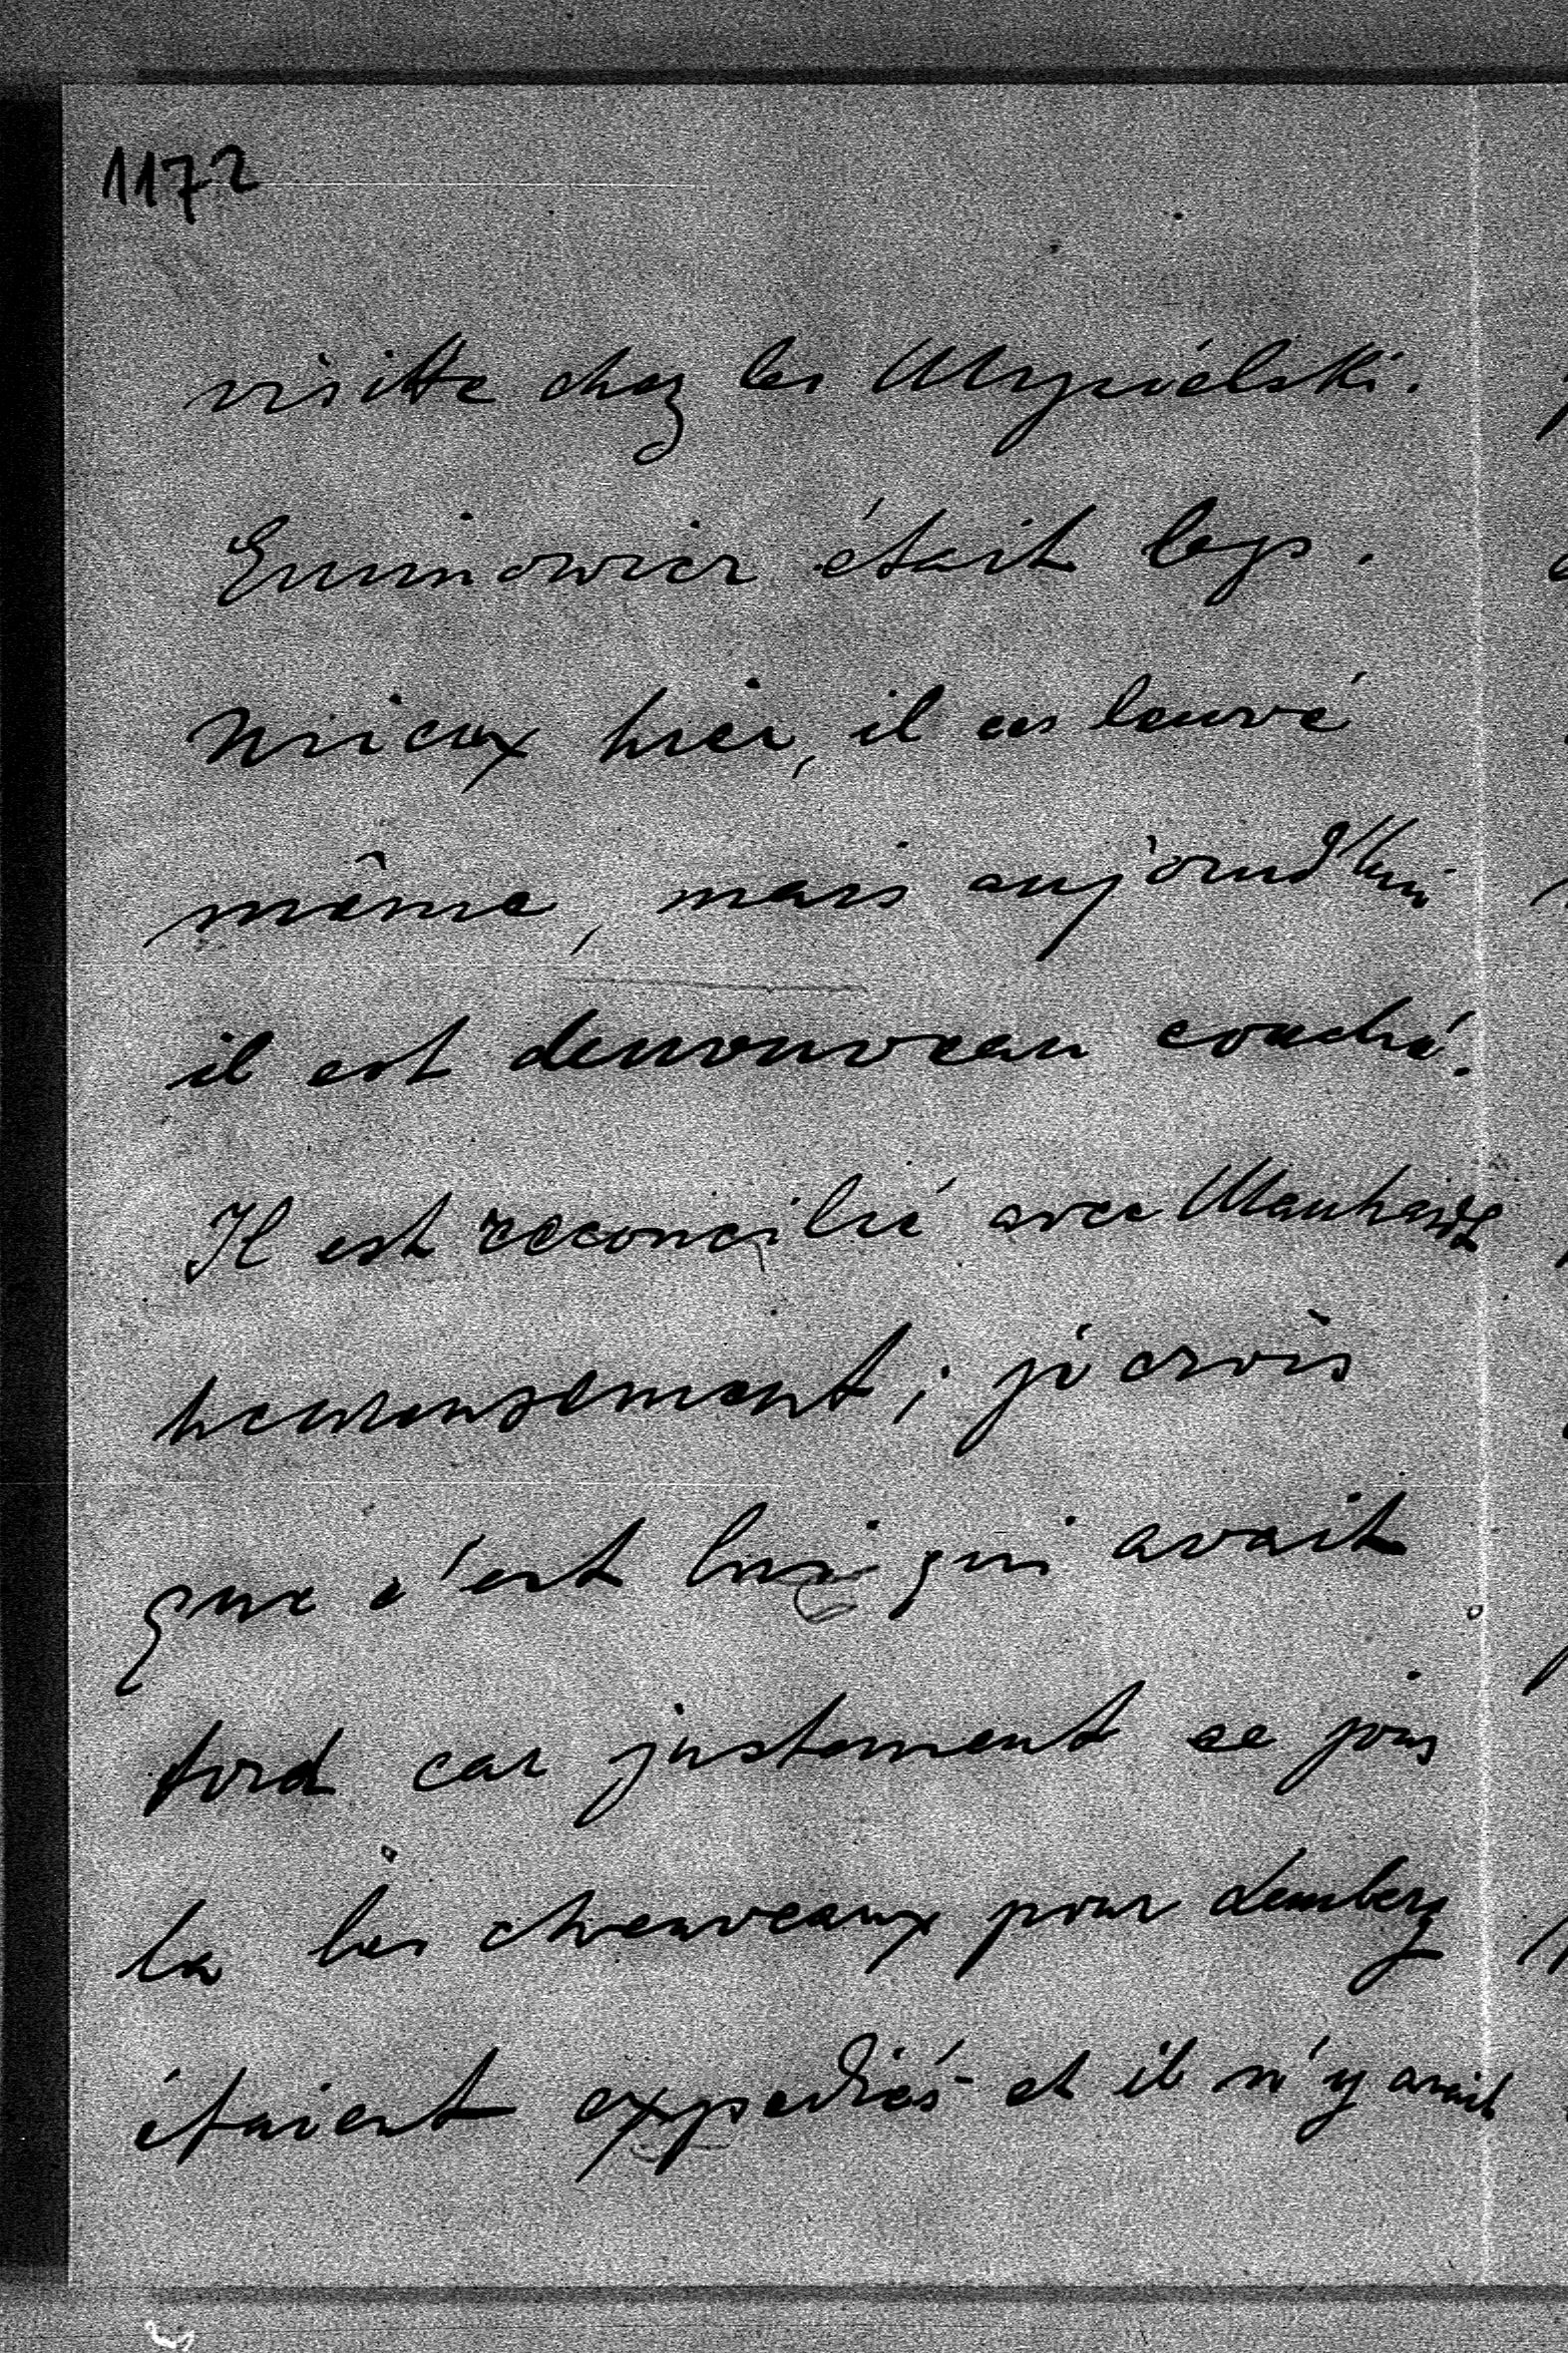 1172
visitte chez les Mycielski.
était
hier, il es leuvé
même, mais aujourd'hui
il est denouveau couché.
Il est reconcilié avec
heureusement; je crois
que c'est lui qui avait
tord car justement ce jour
la les cheuveaux pour Lemberg
étaient expediés et il n'y avait